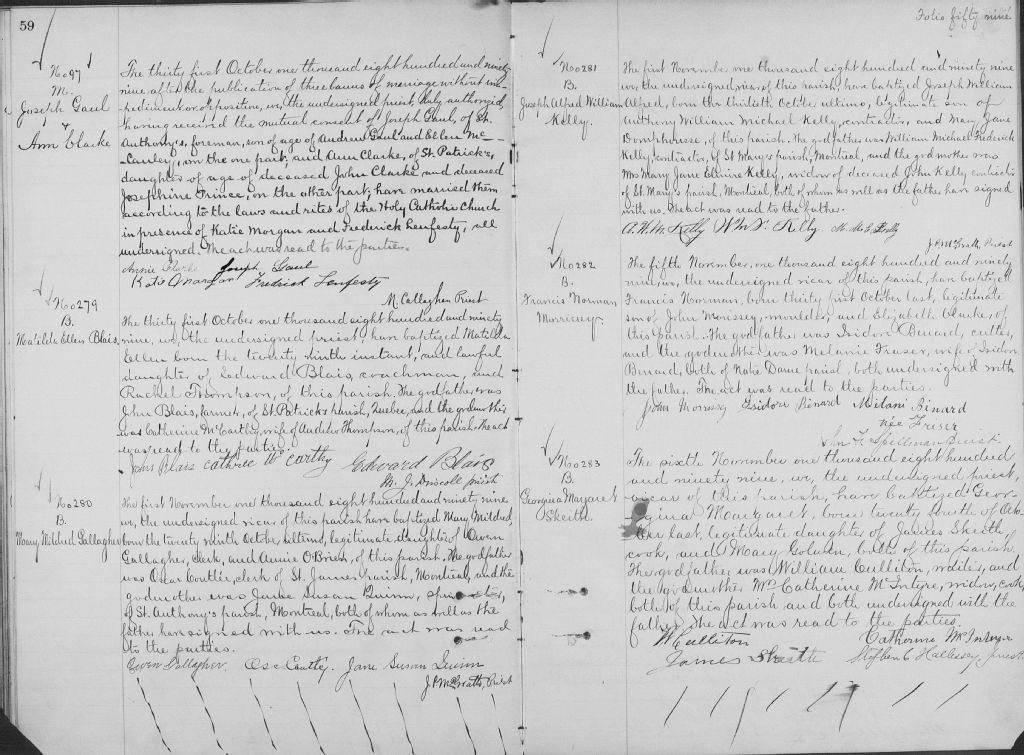 59
No 97
M.
Joseph Gaul
&
Ann Clarke
The thirty first October one thousand eight hundred and ninety
nine after the publication of three banns of marriage without im-
pediment or opposition, we, the undersigned priest, duly authorized,
having received the mutual consent of Joseph Gaul, of St.
Anthony's, foreman, son of age of Andrew Gaul and Ellen Mc-
-Cauley, on the one part; and Ann Clarke, of St. Patrick's,
daughter of age of deceased John Clarke and deceased
Josephine Prince, on the other part; have married them
according to the laws and rites of the Holy Catholic Church
in presence of Katie Morgan and Frederick Lenfesty, all
undersigned. The act was read to the parties.
Annie Clarke Joseph Gaul
Katie Morgan Fredrick Lenfesty
M. Callaghan Priest
No 279
B.
Matilda Ellen Blais.
The thirty first October one thousand eight hundred and ninety
nine, we, the undersigned priest, have baptized Matilda
Ellen born the twenty ninth instant, and lawful
daughter of Edward Blais, coachman, and
Rachel Thompson, of this parish. The godfather was
John Blais, farmer, of St. Patrick's parish, Quebec, and the godmother
was Catherine McCarthy, wife of Andrew Thompson, of this parish. The act
was read to the parties.
John Blais Edward Blais
M. J. Driscoll priest
No 280
B.
Mary Mildred Gallagher
The first November one thousand eight hundred and ninety nine
we, the undersigned vicar of this parish have baptized Mary Mildred,
born the twenty ninth October ultimo, legitimate daughter of Owen
Gallagher, clerk, and Annie O'Brien, of this parish. The godfather
was Oscar Coutlée, clerk of St. James' parish, Montreal, and the
godmother was Jane Susan Quinn, spinster,
of St. Anthony's parish, Montreal, both of whom as well as the
father have signed with us. The act was read
to the parties.
Owen Gallagher. Jane Susan Quinn
J. P. McGrath, Priest
Folio fifty nine
No 281
B.
Joseph Alfred William
Kelly.
The first November one thousand eight hundred and ninety nine
we, the undersigned vicar of this parish, have baptized Joseph William
Alfred, born the thirtieth October ultimo, legitimate son of
Anthony William Michael Kelly, contractor, and Mary Jane
of this parish. The godfather was William Michael Frederick
Kelly, contractor, of St Mary's parish, Montreal, and the godmother was
Mrs Mary Jane Elmire Kelly, widow of deceased John Kelly contractor
of St. Mary's parish, Montreal, both of whom as well as the father have signed
with us. The act was read to the father.
A. W. M. Kelly Wm F. Kelly. M. M. E. Kelly
J. P. McGrath, Priest
No 282
B.
Francis Norman
Morrissey.
The fifth November, one thousand eight hundred and ninety
nine, we, the undersigned vicar of this parish, have baptized
Francis Norman, born thirty first October last, legitimate
son of John Morissey, moulder, and Elizabeth Clarke, of
this parish. The godfather was Isidore Binard, cutter,
and the godmother was Melanie Fraser, wife of Isidore
Binard, both of Notre Dame parish, both undersigned with
the father. The act was read to the parties.
John Morrissey Isidore Binard Milani Binard
née Friser
John F. Spellman priest
No 283
B.
Georgina Margaret
Skeith.
The sixth November one thousand eight hundred
and ninety nine, we, the undersigned priest,
vicar of this parish, have baptized Geor-
gina Margaret, born twenty fourth of Octo-
ber last, legitimate daughter of James Skeith,
cook, and Mary Golden, both of this parish.
The godfather was William Culliton, waiter, and
the godmother Mrs Catherine McIntyre, widow, cook,
both of this parish and both undersigned with the
father. The act was read to the parties.
W Culliton Catherine McIntyre
James Skeith Stephen C Hallissey, priest